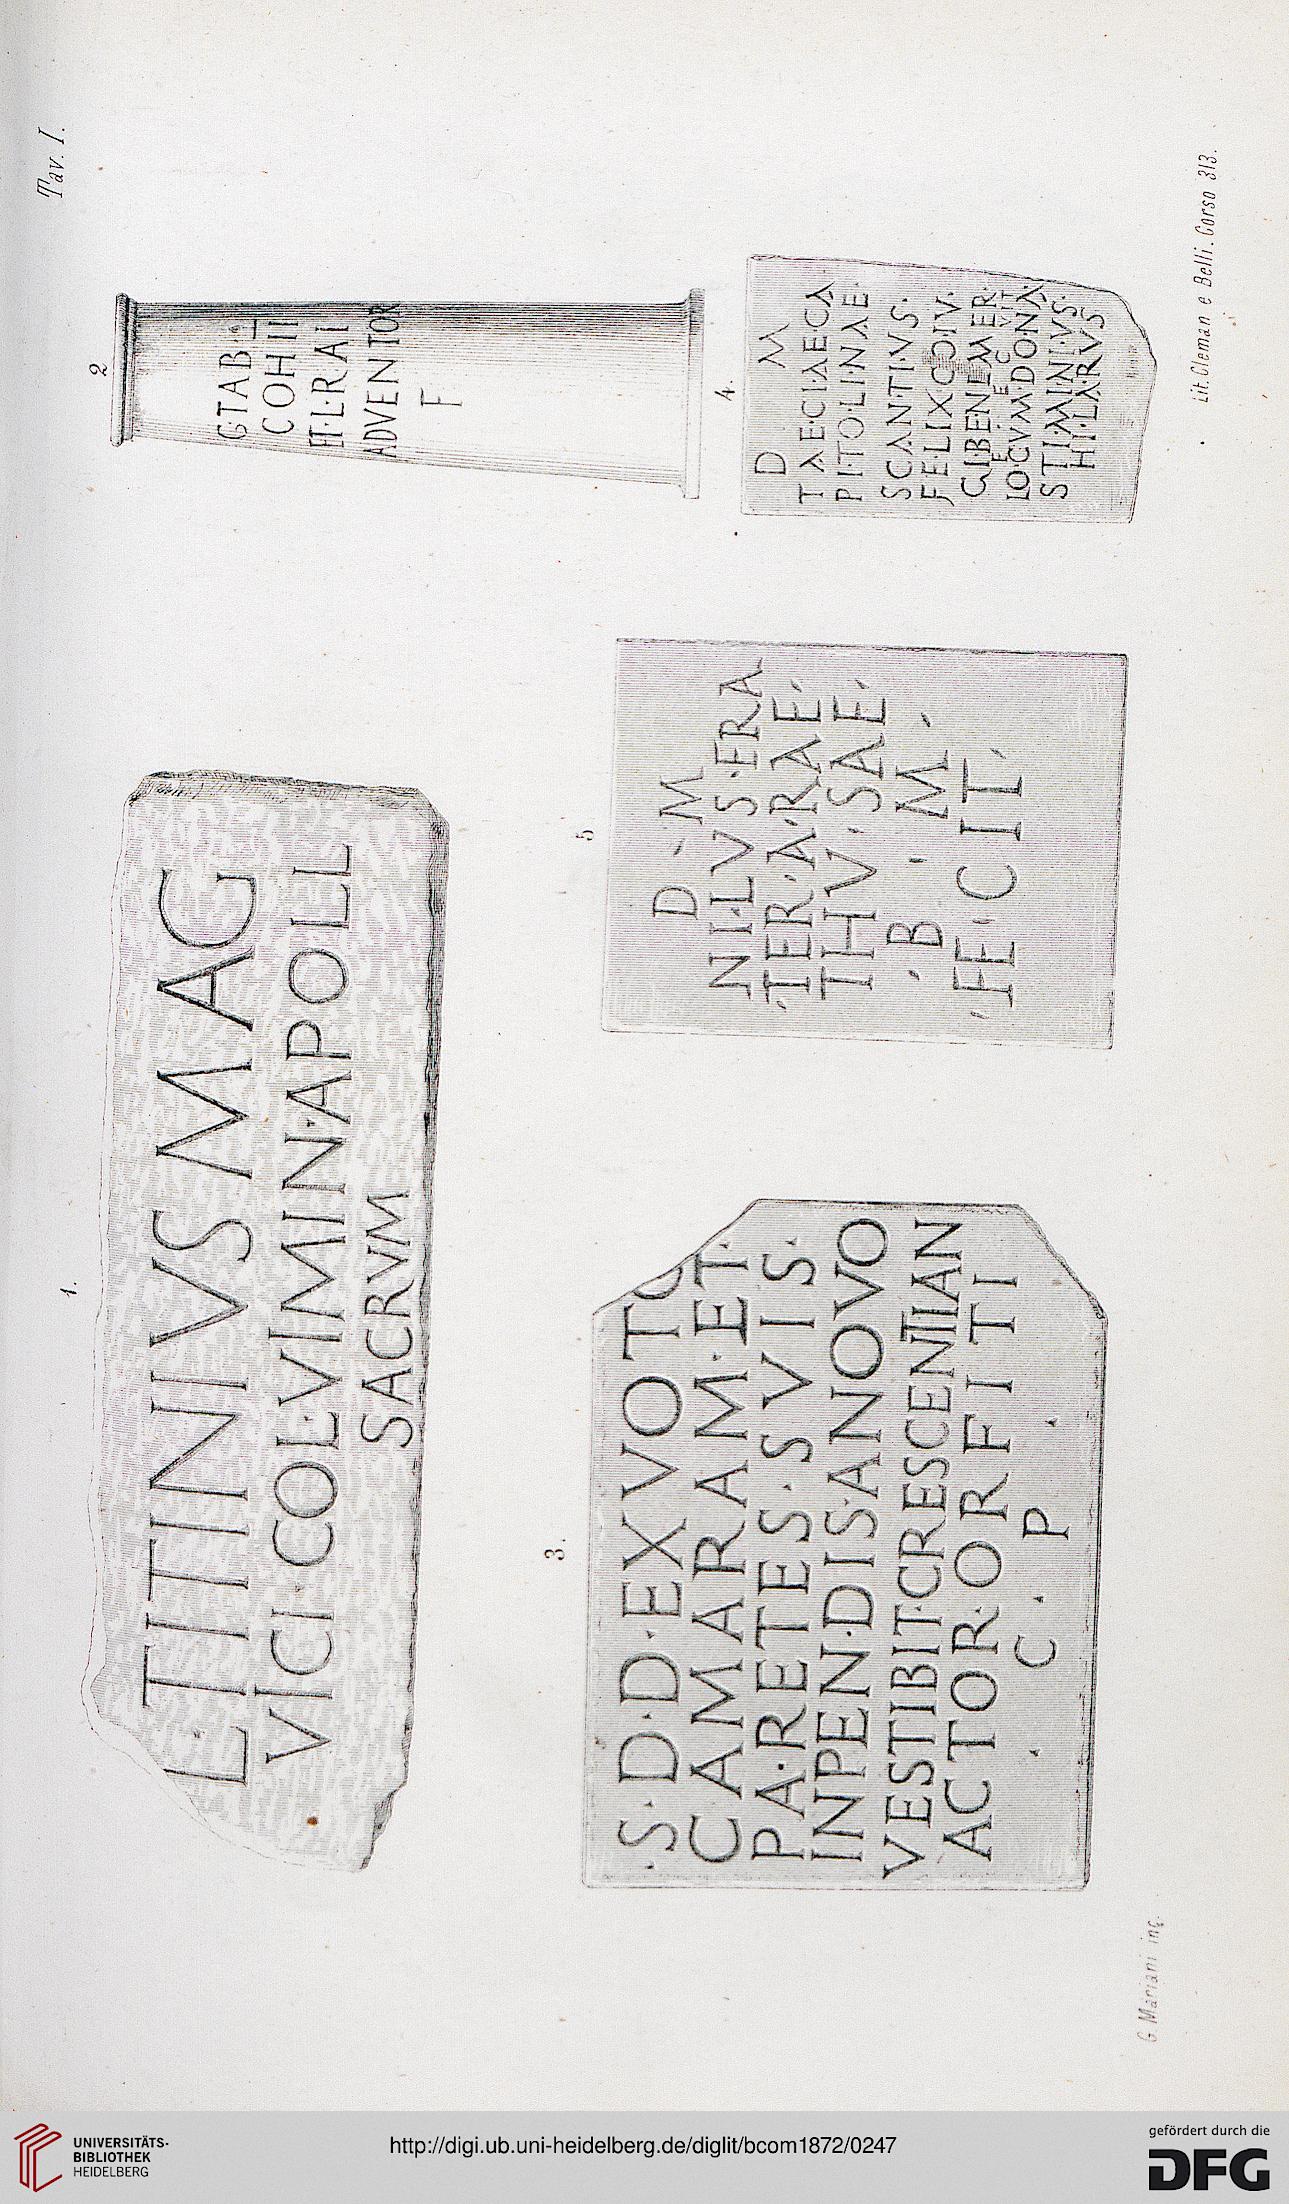 Tav. I.
1.
L·TITINIVS MAG
VICI·COL·VIMIN·APOLL
SACRVM
2
G·TAB·I
COH II
H·L·RAI
ADVENTOR
F
3.
·S·D·D·EXVOTO
CAMARAM·ET·
PA·RETES·SVIS·
INPEN·DIS·ANOVO
VESTIBIT·CRESCENTIAN
ACTOR·ORFITI
·C·P·
4.
D M
TAE·CIAECA
PI·TO·LINAE·
SCAN·TI·VS·
FE·LIX CO·IV·
GI·BE·NE·MER·
FE C VIT
LO·CVM·DO·NA
STI·MINI·VS·
HI·LA·RVS
5
D·M
NI·LVS·FRA
·TER·A·RAE·
THV·SAE·
·B·M·
·FE·CIT·
G Mariani inc.
Lit. Cleman e Belli. Corso 313.
UNIVERSITÄTS-
BIBLIOTHEK
HEIDELBERG
http://digi.ub.uni-heidelberg.de/diglit/bcom1872/0247
gefördert durch die
DFG